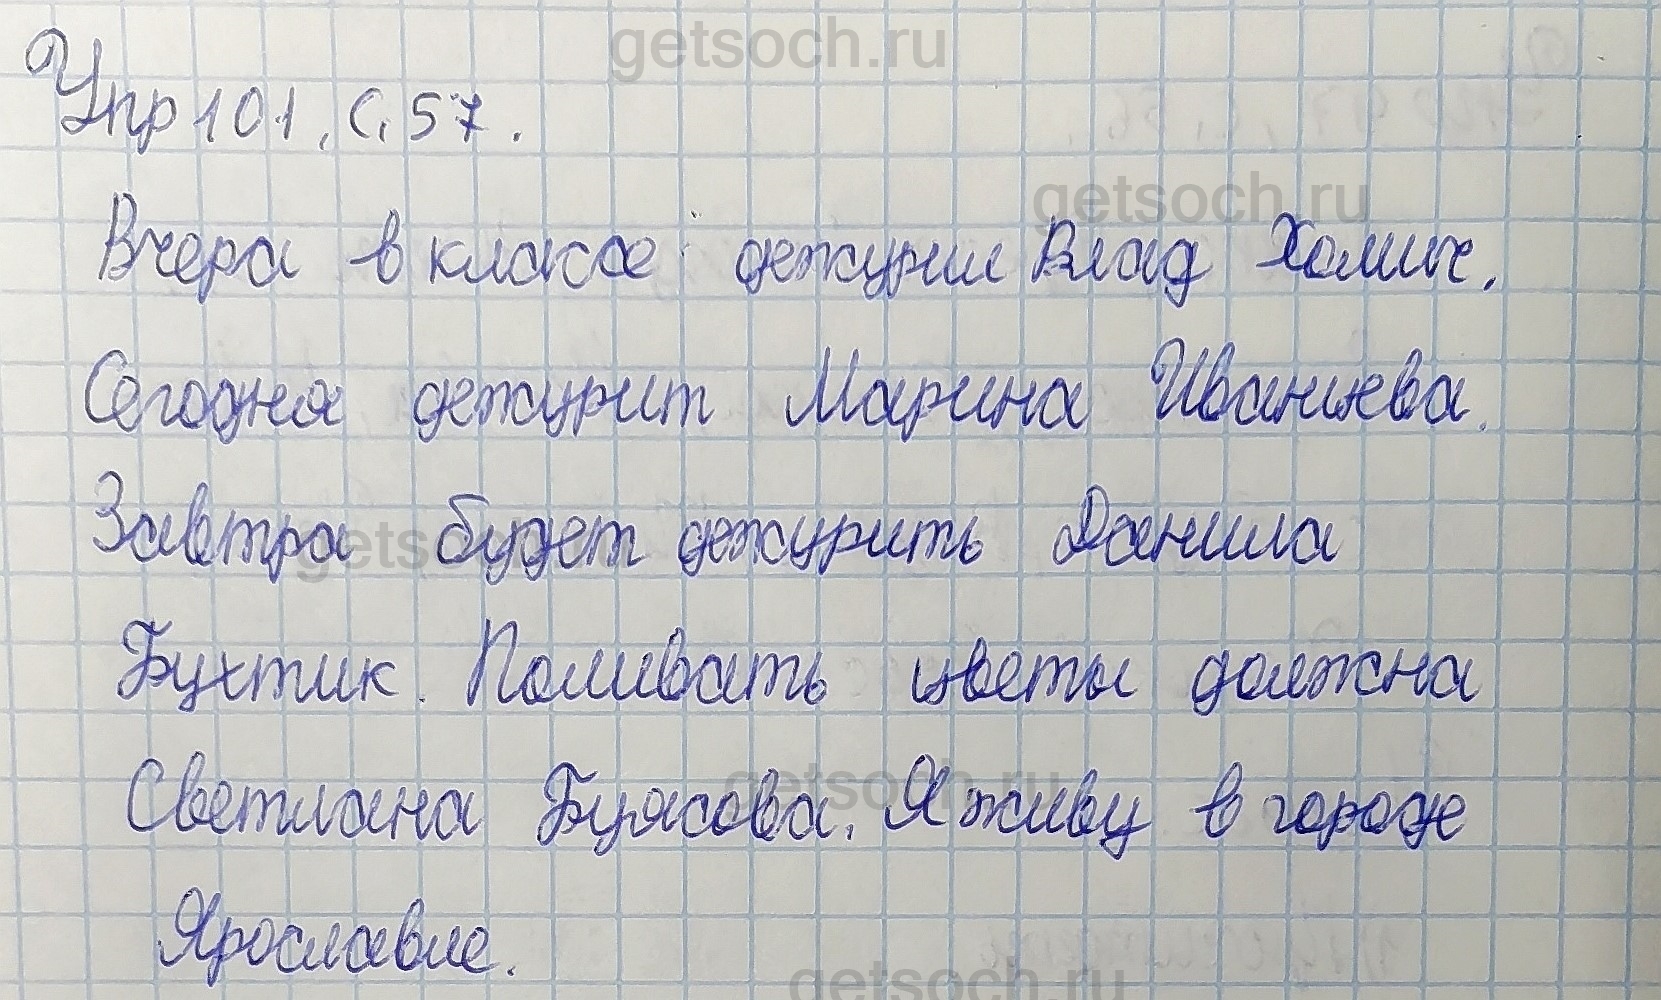 getsoch.ru
Упр 101, с. 57.
getsoch.ru
Вчера в классе дежурил Влад Холич.
Сегодня дежурит Марина Иванцева.
Завтра будет дежурить Данила
getsoch.ru
Бухтик. Поливать цветы должна
getsoch.ru
Светлана Буясова. Я живу в городе
Ярославле.
getsoch.ru